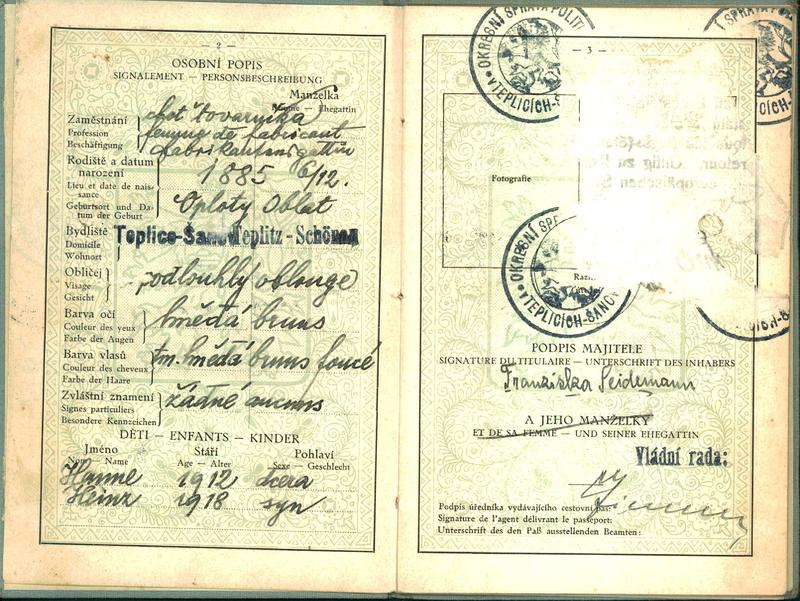 — 2 —
OSOBNÍ POPIS
SIGNALEMENT — PERSONSBESCHREIBUNG
Manželka
Femme — Ehegattin
Zaměstnání
Profession
Beschäftigung
choť továrníka
femme de fabricant
Fabrikantensgattin
Rodiště a datum
narození
Lieu et date de nais-
sance
Geburtsort und Da-
tum der Geburt
1885 6/12.
Oploty Oblat
Bydliště
Domicile
Wohnort
Teplice-Šanov Teplitz-Schönau
Obličej
Visage
Gesicht
podlouhlý oblonge
Barva očí
Couleur des yeux
Farbe der Augen
hnědá bruns
Barva vlasů
Couleur des cheveux
Farbe der Haare
tm. hnědá bruns foncé
Zvláštní znamení
Signes particuliers
Besondere Kennzeichen
žádné aucuns
DĚTI — ENFANTS — KINDER
Jméno Stáří Pohlaví
Nom — Name Age — Alter Sexe — Geschlecht
Hanne 1912 dcera
Heinz 1918 syn
— 3 —
OKRESNÍ SPRÁVA POLIT
V TEPLICÍCH-Š
SPRÁVA POL
ICÍCH-Š
Fotografie
OKRESNÍ SP
V TEPLICÍCH-ŠANOV
Raz
PODPIS MAJITELE
SIGNATURE DU TITULAIRE — UNTERSCHRIFT DES INHABERS
Franziska Seidemann
A JEHO MANŽELKY
ET DE SA FEMME — UND SEINER EHEGATTIN
Vládní rada:
Podpis úředníka vydávajícího cestovní pas:
Signature de l'agent délivrant le passeport:
Unterschrift des den Paß ausstellenden Beamten: